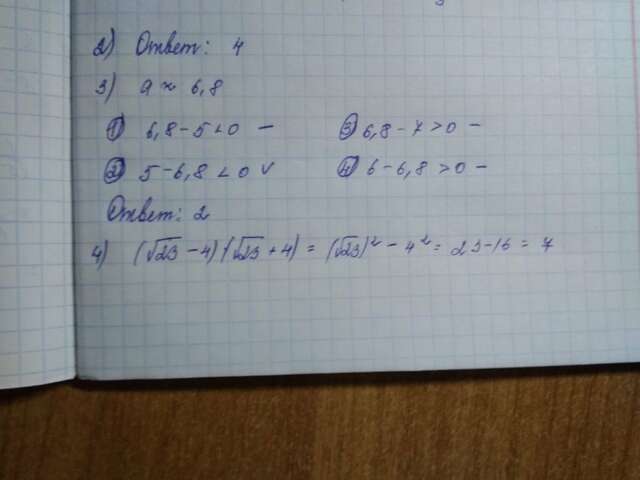 2) Ответ: 4
3) a ≈ 6,8
① 6,8 - 5 < 0 — ③ 6,8 - 7 > 0 —
② 5 - 6,8 < 0 ∨ ④ 6 - 6,8 > 0 —
Ответ: 2
4) (√23 - 4)(√23 + 4) = (√23)² - 4² = 23 - 16 = 7